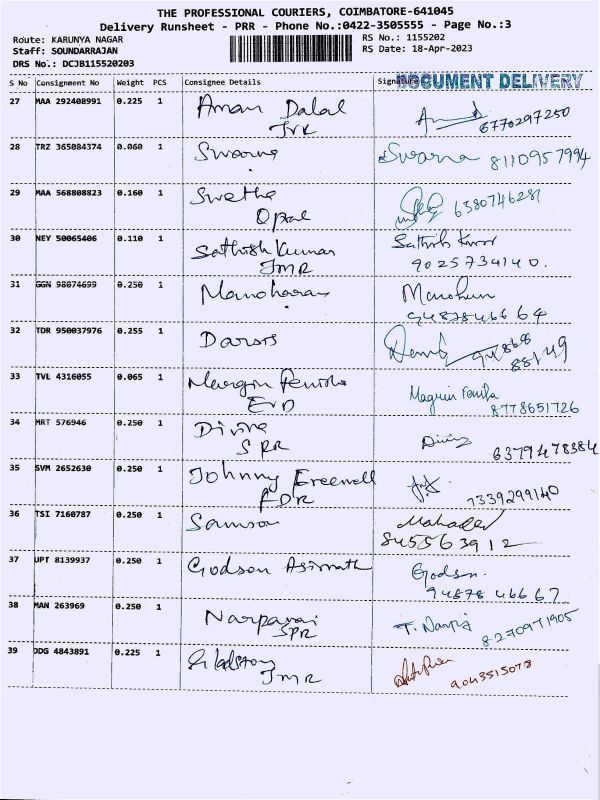 THE PROFESSIONAL COURIERS, COIMBATORE-641045
Delivery Runsheet - PRR - Phone No.:0422-3505555 - Page No.:3
Route: KARUNYA NAGAR
RS No.: 1155202
Staff: SOUNDARRAJAN
RS Date: 18-Apr-2023
DRS No.: DCJB115520203
S No Consignment No Weight PCS Consignee Details Signature DOCUMENT DELIVERY
27 MAA 292408991 0.225 1 Aman Dalal
JVR 6770297250
28 TRZ 365084374 0.060 1 Swarna Swarna 8110957994
29 MAA 568808823 0.160 1 Swetha
Opal 6380746281
30 NEY 50065406 0.110 1 Sathish Kumar Sathish Kumar
JMR 9025734140.
31 GGN 98074699 0.250 1 Manoharan
9487846664
32 TDR 950037976 0.255 1
94868
88149
33 TVL 4316055 0.065 1
EVD 8778651726
34 MRT 576946 0.250 1 Divine
SRR 6379478384
35 SVM 2652630 0.250 1 Johnny
FDR 7339299140
36 TSI 7160787 0.250 1 Samson
8455563912
37 UPT 8139937 0.250 1 Godson Godson.
94878 46667
38 MAN 263969 0.250 1
SPR 8270971905
39 DDG 4843891 0.225 1
JMR 9043515078